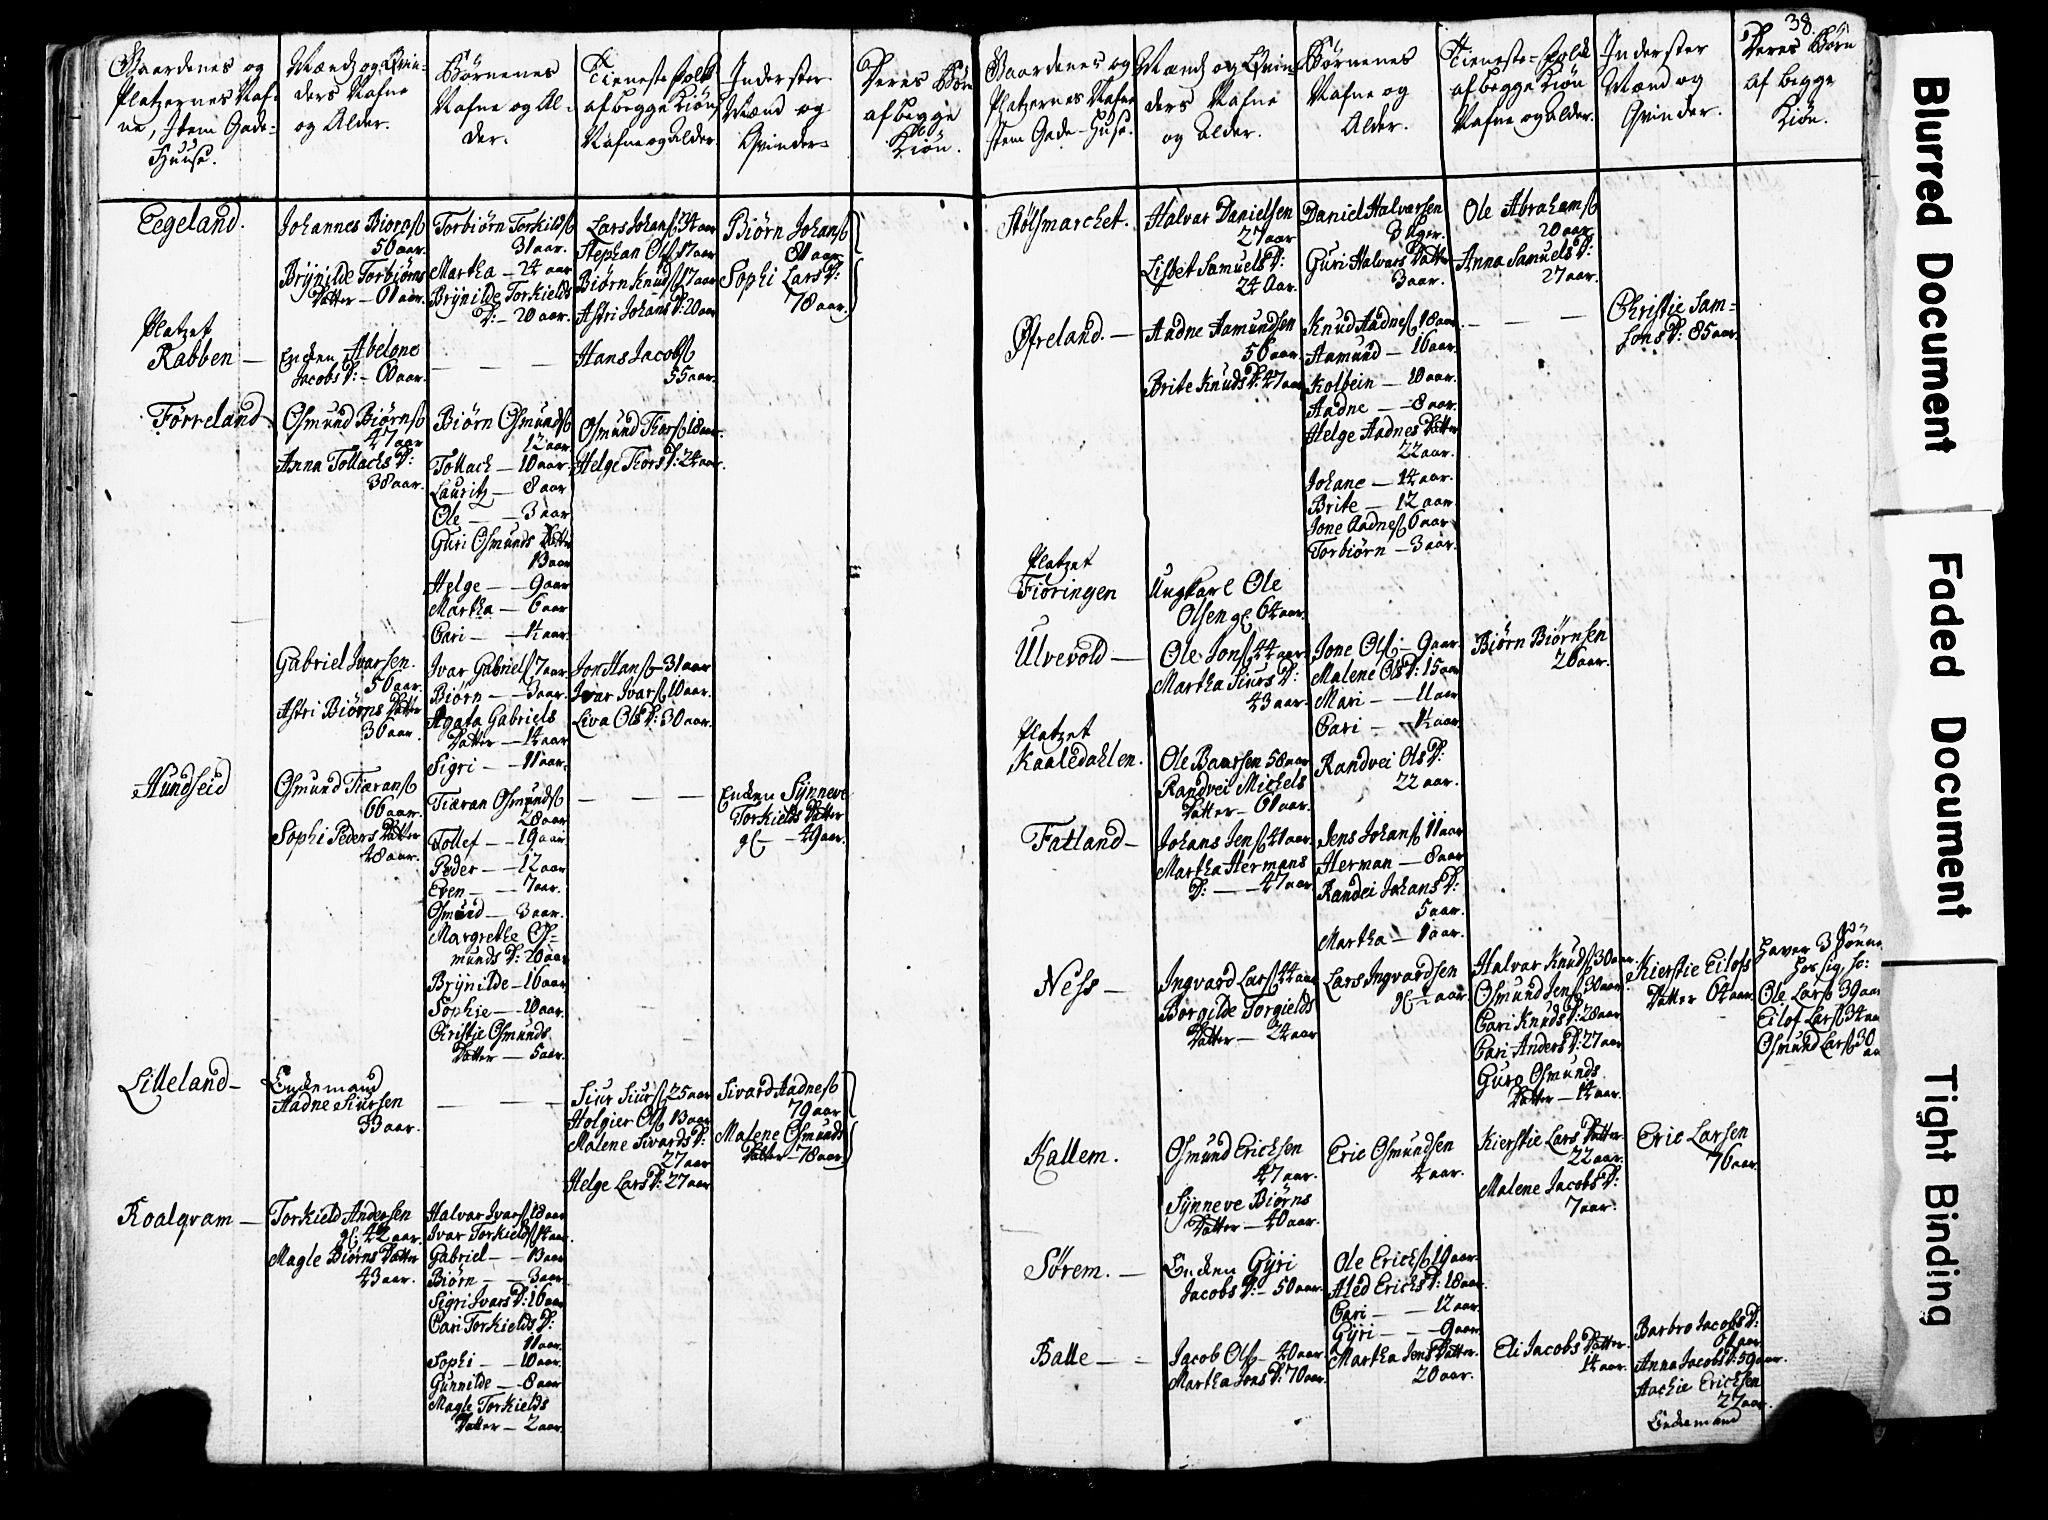 Gaardenes og
Platzernes Naf-
ne, Item Gade-
Huuse.
Mænds og Qvin-
ders Nafne
og Alder.
Børnenes
Nafne og Al-
der.
Tieneste folk
af begge Kiøn
Nafne og Alder.
Inderster
Mænd og
Qvinder
Deres Børn
af begge
Kiøn.
Eegeland.
Johannes Biørnsß
50 aar.
Brÿnilde Torbiørns
Datter — 61 aar.
Torbiørn Torkildsß
31 aar.
Martha — 24 aar
Brÿnilde Torkields
D: — 20 aar.
Lars Johansß 34 aar
Stephan Olsß 17 aar
Biørn Knudsß 17 aar
Astri Johans D: 20 aar
Biørn Johansß
81 aar.
Sophi Lars D:
78 aar.
Platzet
Rabben —
Enken Abelone
Jacobs D: — 60 aar.
— — —
Hans Jacobsß
55 aar.
Førreland
Osmund Biørnsß
47 aar
Anna Tollachs D:
38 aar.
Biørn Osmundsß
12 aar
Tollach — 10 aar.
Lauritz — 8 aar
Ole — — 3 aar
Guri Osmunds Datter
13 aar
Helge — — 9 aar
Martha — 6 aar
Cari — — 1½ aar.
Osmund Thorsß 18 aar.
Helge Thors D: 24 aar.
Gabriel Ivarsen.
50 aar.
Astri Biørns Datter
36 aar.
Ivar Gabrielsß 7 aar
Biørn — — 3 aar.
Agata Gabriels
Datter — 14 aar
Sigri — — 11 aar.
Jon Hansß — 31 aar
Ivar Ivarsß 10 aar.
Liva Ols D: 30 aar.
Hundseid
Osmund Tiæransß
66 aar.
Sophi Peders Datter
48 aar.
Tiæran Osmundsß
28 aar
Tollef — — 19 aar
Peder — — 12 aar
Even — — 7 aar.
Osmund — 3 aar.
Margrethe Os-
munds D: 20 aar
Brÿnilde — 16 aar
Sophie — — 10 aar.
Christie Osmunds
Datter — 5 aar.
— — —
Enken Sÿnneve
Torkields Datter
gl — 49 aar.
Lilleland —
Enkemand
Aadne Siursen
33 aar.
— — —
Siur Siursß 25 aar
Holgier Olsß 13 aar
Malene Sivards D:
27 aar
Helge Lars D: 27 aar
Sivard Aadnesß
79 aar
Malene Osmunds
Datter — 78 aar.
Roalqvam —
Torkield Andersen
gl. 42 aar.
Magle Biørns Datter
43 aar.
Halvar Ivarsß 18 aar
Ivar Torkieldsß 14 aar.
Gabriel — — 13 aar
Biørn — — 3 aar
Sigri Ivars D: 16 aar
Cari Torkields D:
11 aar.
Sophi — — 10 aar.
Gunnilde — 8 aar
Magle Torkields
Datter — 2 aar.
38.
Gaardenes og
Platzernes Nafne
Item Gade-Huse.
Mænds og Qvin-
ders Nafne
og Alder.
Børnenes
Nafne og
Alder.
Tieneste-folk
af begge Kiøn
Nafne og Alder.
Inderster
Mænd og
Qvinder.
Deres Børn
af begge
Kiøn.
Stølsmarchet.
Halvar Danielsen
27 aar
Lisbet Samuels D:
24 Aar.
Daniel Halvarsen
3 uger.
Guri Halvars Datter
3 aar.
Ole Abrahamsß
20 aar.
Anna Samuels D:
27 aar.
Øfreland. —
Aadne Aamundsen
50 aar.
Brite Knuds D: 47 aar
Knud Aadnesß 18 aar
Aamund — 16 aar.
Kolbein — 10 aar.
Aadne — — 8 aar.
Helge Aadnes Datter
22 aar.
Johane — 14 aar.
Brite — — 12 aar
Jone Aadnesß 6 aar
Torbiørn — 3 aar.
— — —
Christie Sam-
sons D: 85 aar.
Platzet
Fiøringen
Ungkarl Ole
Olsen gl. 64 aar.
Ulvevold —
Ole Jonsß 44 aar.
Martha Siurs D:
43 aar.
Jone Olsß — 9 aar
Malene Ols D: 15 aar
Mari — — 11 aar
Cari — — 1½ aar.
Biørn Biørnsen
26 aar.
Platzet
Kaaledahlen.
Ole Baarsen 58 aar
Randvei Michels
Datter — 61 aar.
Randvei Ols D:
22 aar.
Fatland —
Johans Jensß 41 aar.
Martha Hermans
D: — — 47 aar
Jens Johansß 11 aar
Herman — 8 aar
Randei Johans D:
5 aar.
Martha — 1 aar.
Ness —
Ingvard Larsß 44 aar
Borgilde Torgields
Datter — 34 aar
Lars Ingvardsen
gl. — ½ aar.
Halvar Knudsß 30 aar
Osmund Jensß 30 aar.
Cari Knuds D: 28 aar
Cari Anders D: 27 aar
Guro Osmunds
Datter — 14 aar.
Kierstie Eilofs
Datter 64 aar.
Haver 3 Sønner
hos sig, so:
Ole Larsß 39 aar
Eilof Larsß 34 aar
Osmund Larsß 30
aar
Kallem.
Osmund Ericksen
47 aar.
Sÿnneve Biørns
Datter — 40 aar.
Eric Osmundsen
4 aar.
Kierstie Lars Datter
22 aar.
Malene Jacobs D:
7 aar.
Eric Larsen
76 aar.
Sørem. —
Enken Gÿri
Jacobs D: — 50 aar.
Ole Ericksß 19 aar.
Aled Ericks D: 18 aar.
Cari — — 12 aar.
Gÿri — — 9 aar.
Balle — -
Jacob Olsß — 40 aar.
Martha Jons D: 70 aar.
Martha Jens Datter.
20 aar.
Eli Jacobs Datter.
14 aar.
Barbro Jacobs D:
61 aar
Anna Jacobs D: 59 aar.
Aachie Ericksen
27 aar.
Enkemand
Blurred Document
Faded Document
Tight Binding